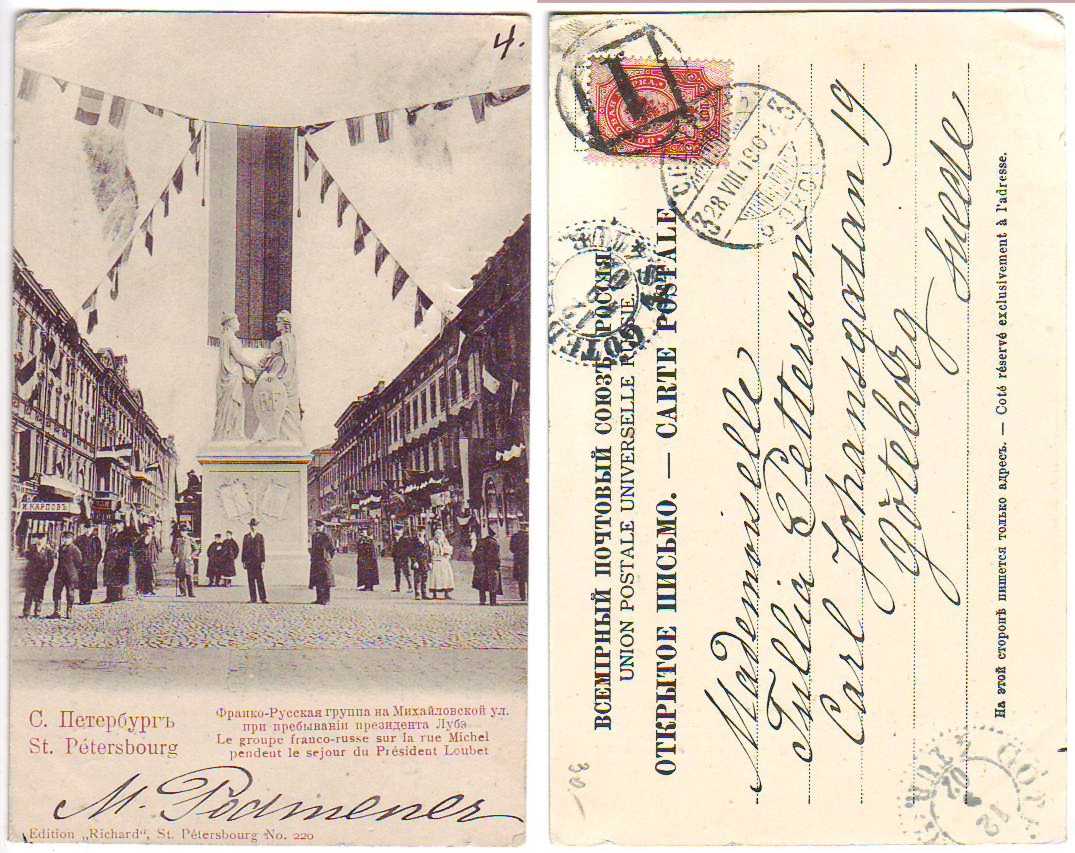 4.
И. КАРПОВЪ
RF
С. Петербургъ
St. Pétersbourg
Франко-Русская группа на Михайловской ул.
при пребываніи президента Лубэ
Le groupe franco-russe sur la rue Michel
pendent le sejour du Président Loubet
M. Podmener
Edition „Richard“, St. Pétersbourg No. 220
1
28 VIII 190
ВСЕМІРНЫЙ ПОЧТОВЫЙ СОЮЗЪ. РОССІЯ.
UNION POSTALE UNIVERSELLE RUSSIE.
ОТКРЫТОЕ ПИСЬМО. — CARTE POSTALE
Mademoiselle
Tullia Pettersson
Carl Johansgatan 19
Göteborg
Suede
На этой сторонѣ пишется только адресъ. — Coté réservé exclusivement à l'adresse.
30